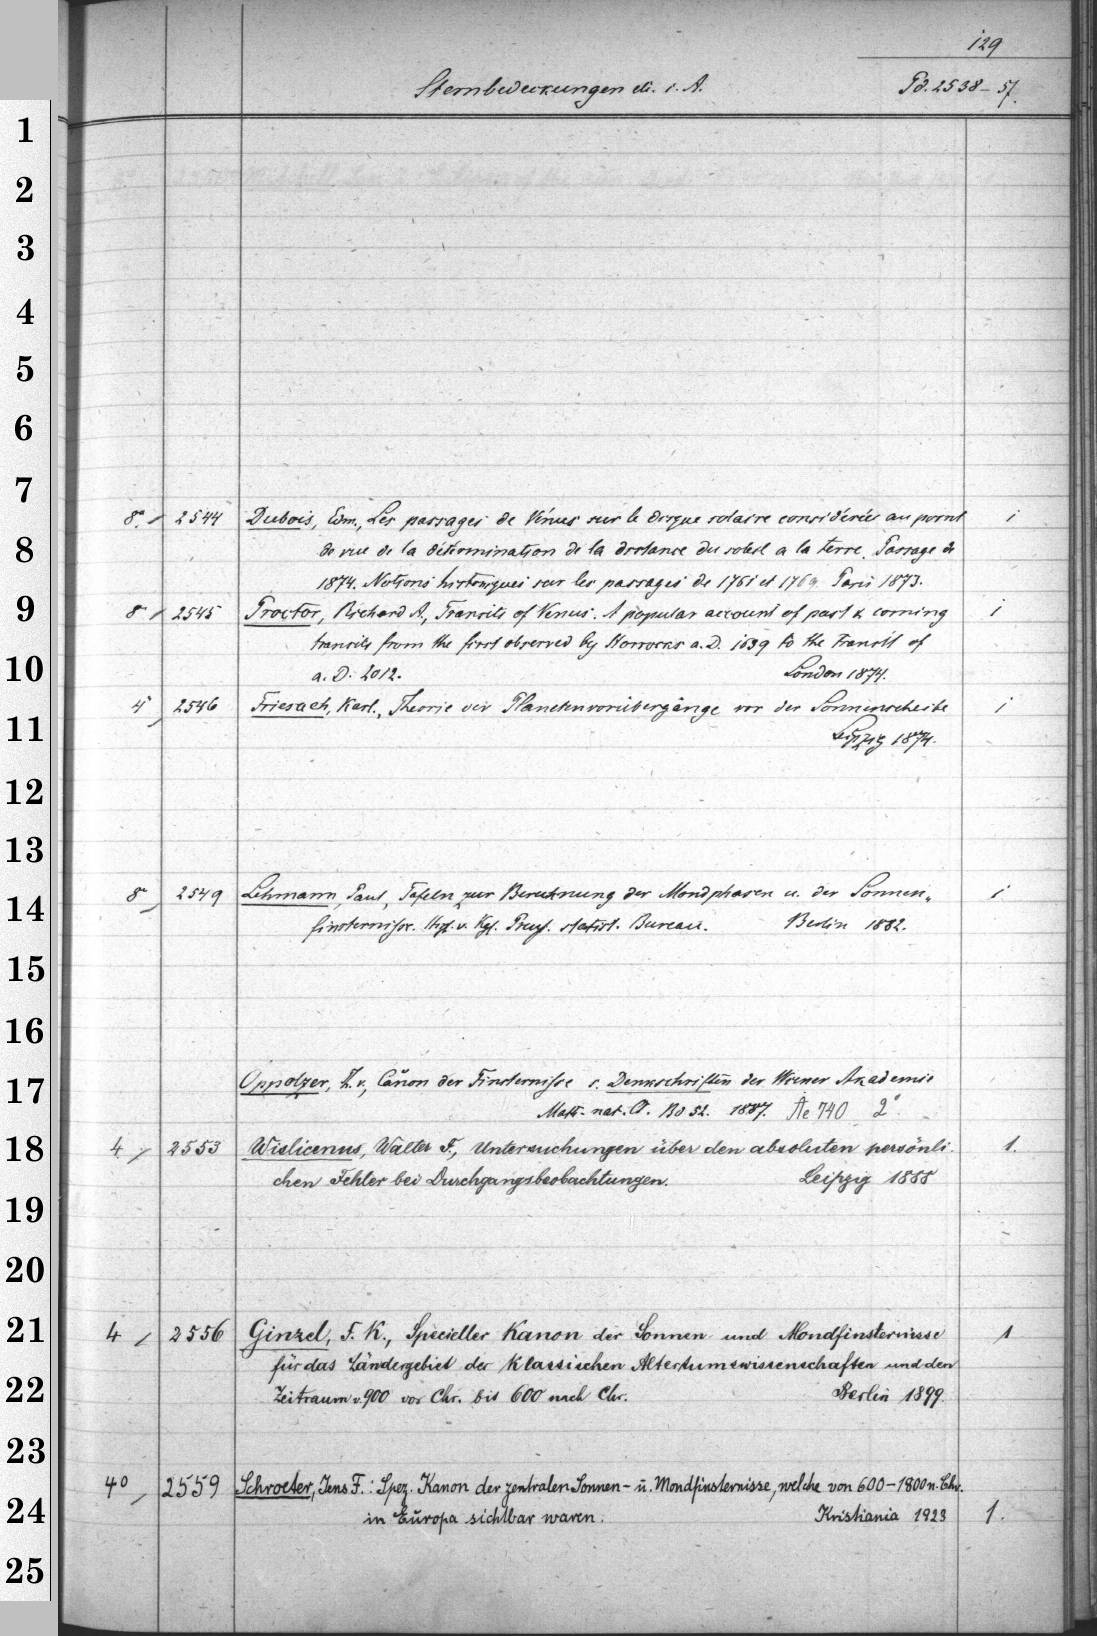 129
Sternbedeckungen etc. i. A. Pd. 2538-57.
1
2
3
4
5
6
7
8° 2544 Dubois, Edm., Les passages de Vénus sur le disque solaire considérées au point 1
8
de vue de la détermination de la distance du soleil a la terre. Passage de
1874. Notions historiques sur les passages de 1761 et 1769 Paris 1873.
9
8° 2545 Proctor, Richard A., Transits of Venus. A popular account of past & coming 1
transits from the first observed by Horrocks a. D. 1639 to the transit of
10
a. D. 2012. London 1874.
4° 2546 Friesach, Karl., Theorie der Planetenvorübergänge vor der Sonnenscheibe 1
11
Leipzig 1874.
12
13
8° 2549 Lehmann, Paul, Tafeln zur Berechnung der Mondphasen u. der Sonnen- 1
14
finsternisse. Hrg. v. Kgl. Preuß. statist. Bureau. Berlin 1882.
15
16
Oppolzer, Th. v., Canon der Finsternisse s. Denkschriften der Wiener Akademie
17
Math.-nat. Cl. Bd 52. 1887. Ae 740 2°
18
4 2553 Wislicenus, Walter F., Untersuchungen über den absoluten persönli- 1.
chen Fehler bei Durchgangsbeobachtungen. Leipzig 1888
19
20
21
4 2556 Ginzel, F. K., Specieller Kanon der Sonnen und Mondfinsternisse 1
für das Ländergebiet der klassischen Altertumswissenschaften und den
22
Zeitraum v. 900 vor Chr. bis 600 nach Chr. Berlin 1899.
23
4° 2559 Schroeter, Jens F.: Spez. Kanon der zentralen Sonnen- u. Mondfinsternisse, welche von 600-1800 n. Chr.
24
in Europa sichtbar waren. Kristiania 1923 1.
25